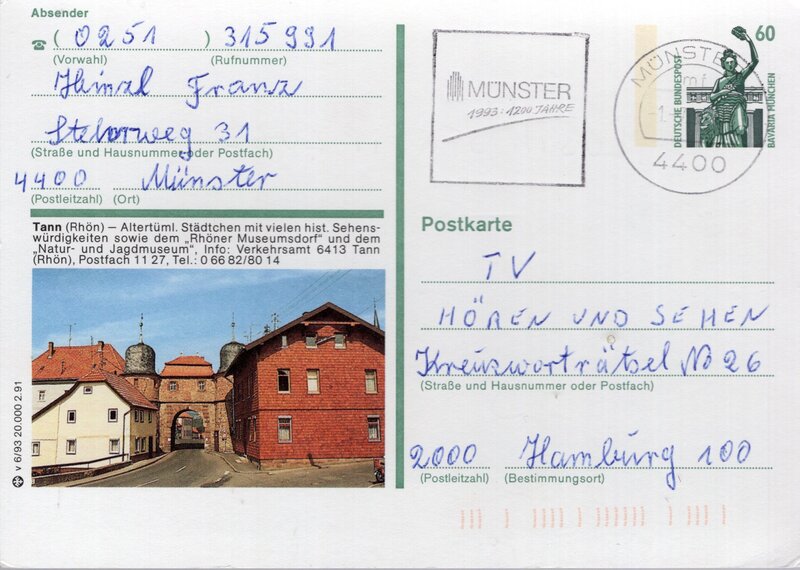 Absender
( 0251 ) 315991
(Vorwahl) (Rufnummer)
Heinzl Franz
31
(Straße und Hausnummer oder Postfach)
4400 Münster
(Postleitzahl) (Ort)
Tann (Rhön) – Altertüml. Städtchen mit vielen hist. Sehens-
würdigkeiten sowie dem „Rhöner Museumsdorf“ und dem
„Natur- und Jagdmuseum“, Info: Verkehrsamt 6413 Tann
(Rhön), Postfach 11 27, Tel.: 0 66 82/80 14
v 6/93 20.000 2.91
MÜNSTER
1993 · 1200 JAHRE
MÜNSTER
4400
60
DEUTSCHE BUNDESPOST
BAVARIA MÜNCHEN
Postkarte
TV
HÖREN UND SEHEN
Kreuzworträtsel No 26
(Straße und Hausnummer oder Postfach)
2000 Hamburg 100
(Postleitzahl) (Bestimmungsort)